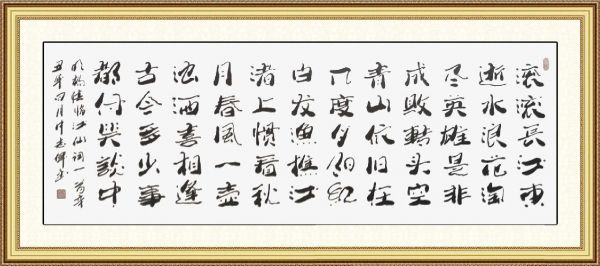 滚滚长江东
逝水浪花淘
尽英雄是非
成败转头空
青山依旧在
几度夕阳红
白发渔樵江
渚上惯看秋
月春风一壶
浊酒喜相逢
古今多少事
都付笑谈中
明杨慎临江仙词一首辛
丑年四月